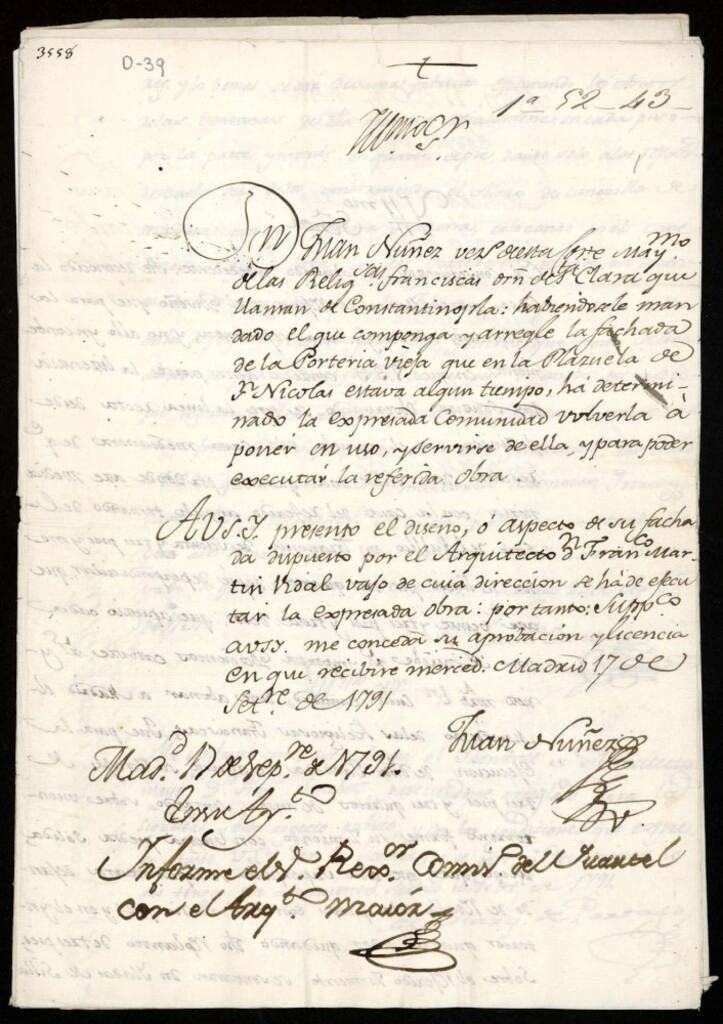 3558
D-39
1ª 52-43
Dn Juan Nuñez vezº de esta Corte Maymo
de las Religsas Franciscas orñ de Sta Clara que
llaman de Constantinopla: habiendosele man
dado el que componga y arregle la fachada
de la Porteria vieja que en la Plazuela de
Sn Nicolas estava algun tiempo, há determi-
nado la expresada Comunidad volverla à
poner en uso, y servirse de ella, y para poder
executar la referida obra
A V.S.Y. presento el diseno, ó aspecto de su facha
da dispuesto por el Arquitecto Dn Franco Mar
tin Vidal vajo de cuia direccion se há de efecu
tar la expresada obra: por tanto: Suppco
a V.S.Y. me conceda su aprobacion y licencia
en que recibire merced. Madrid 17 de
Setre de 1791
Juan Nuñez
Madd. 17 de Sepre de 1791.
En su Ayto
Informe el S. Rexor Comisº del Quartel
con el Arqto maiór